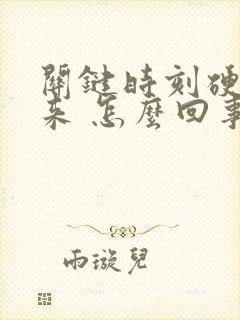 關鍵時刻硬
來 怎麼回事
雨漩兒